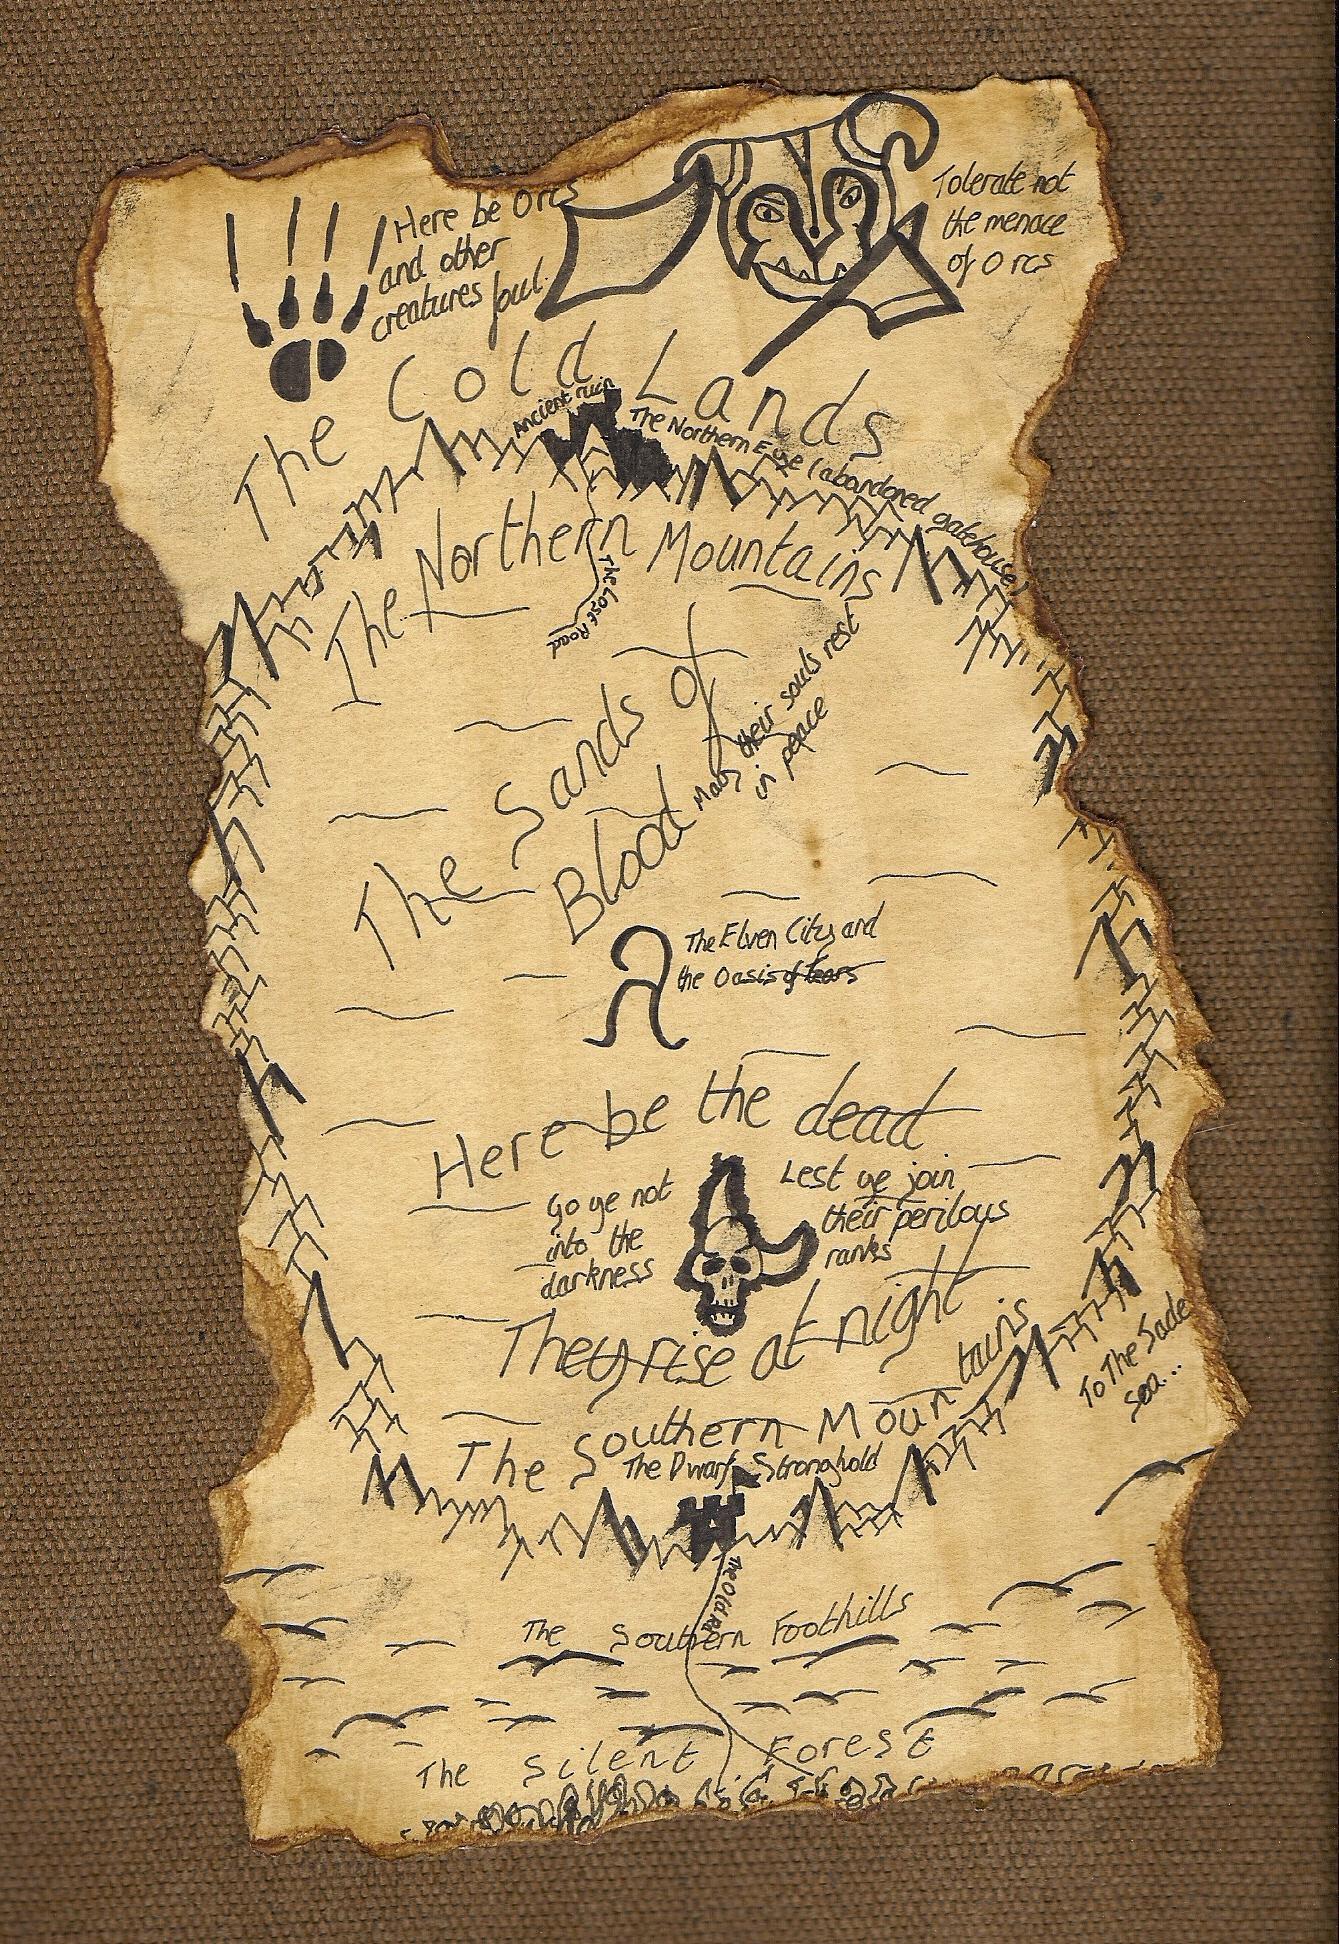 Here be Orcs
and other
creatures foul.
Tolerate not
the menace
of Orcs
The Cold Lands
Ancient ruin
The Northern Eye (abandoned gatehouse)
The Northern Mountains
The Lost Road
The Sands of
Blood
May their souls rest
in peace
The Elven City and
the Oasis of tears
Here be the dead
Go ye not
into the
darkness
Lest ye join
their perilous
ranks
They rise at night
The Southern Mountains
The Dwarf Stronghold
To The Sade
Sea...
The Old Rd
The Southern Foothills
The Silent Forest